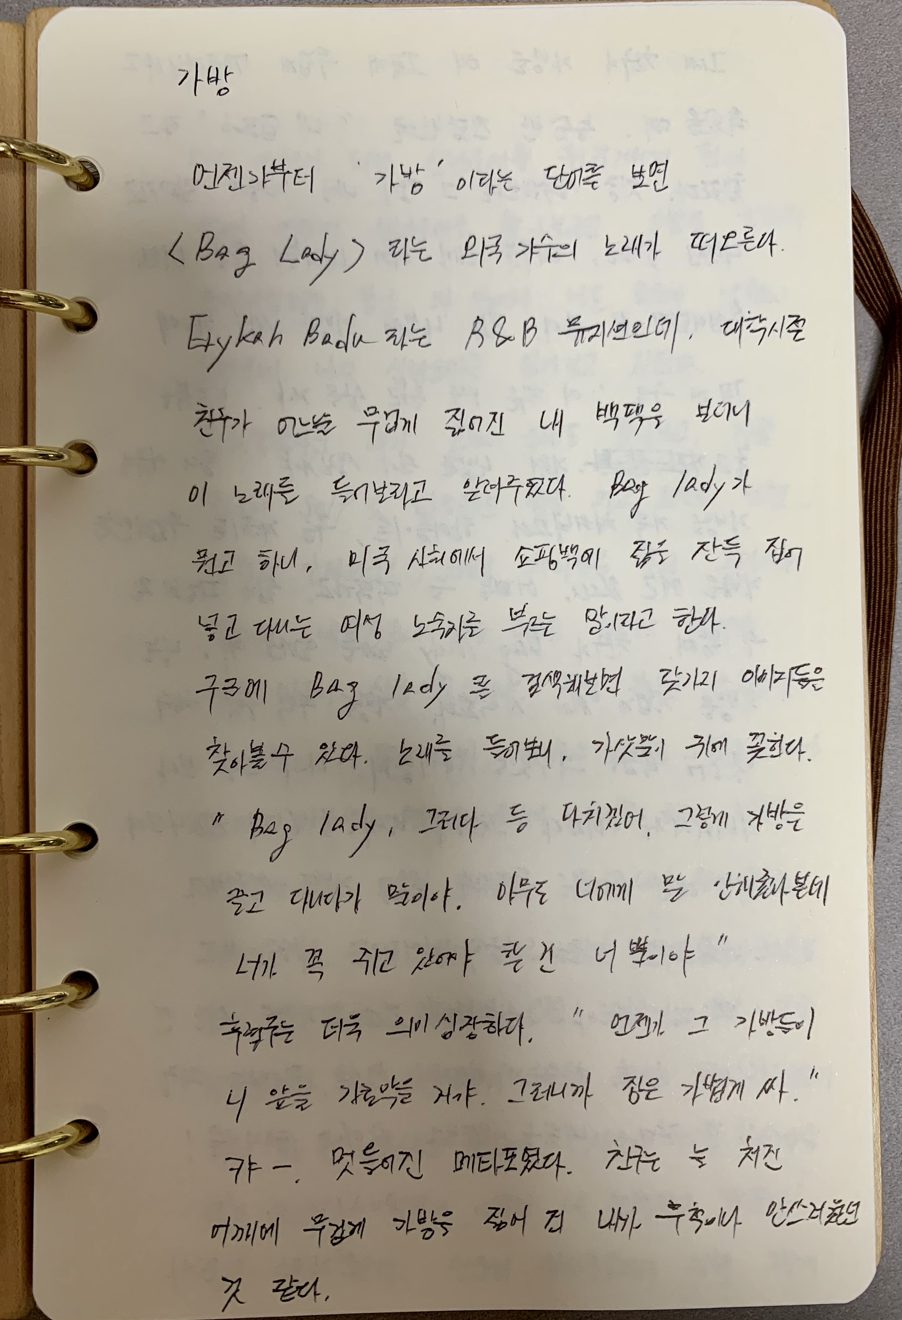 가방
언젠가부터 '가방' 이라는 단어를 보면
<Bag Lady> 라는 외국 가수의 노래가 떠오른다.
Erykah Badu 라는 R&B 뮤지션인데, 대학시절
친구가 어느날 무겁게 짊어진 내 백팩을 보더니
이 노래를 들어보라고 알려주었다. Bag lady가
뭔고 하니, 미국 사회에서 쇼핑백에 짐을 잔뜩 집어
넣고 다니는 여성 노숙자를 부르는 말이라고 한다.
구글에 Bag lady 를 검색해보면 몇가지 이미지들은
찾아볼수 있다. 노래를 들어보니, 가삿말이 귀에 꽂힌다.
" Bag lady, 그러다 등 다치겠어. 그렇게 가방을
끌고 다니다가 말이야. 아무도 너에게 말 안해줬나본데
너가 꼭 쥐고 있어야 할 건 너 뿐이야 "
후렴구는 더욱 의미심장하다. " 언젠가 그 가방들이
니 앞을 가로막을 거야. 그러니까 짐은 가볍게 싸. "
캬 -. 멋들어진 메타포였다. 친구는 늘 처진
어깨에 무겁게 가방을 짊어 진 내가 무척이나 안스러웠던
것 같다.